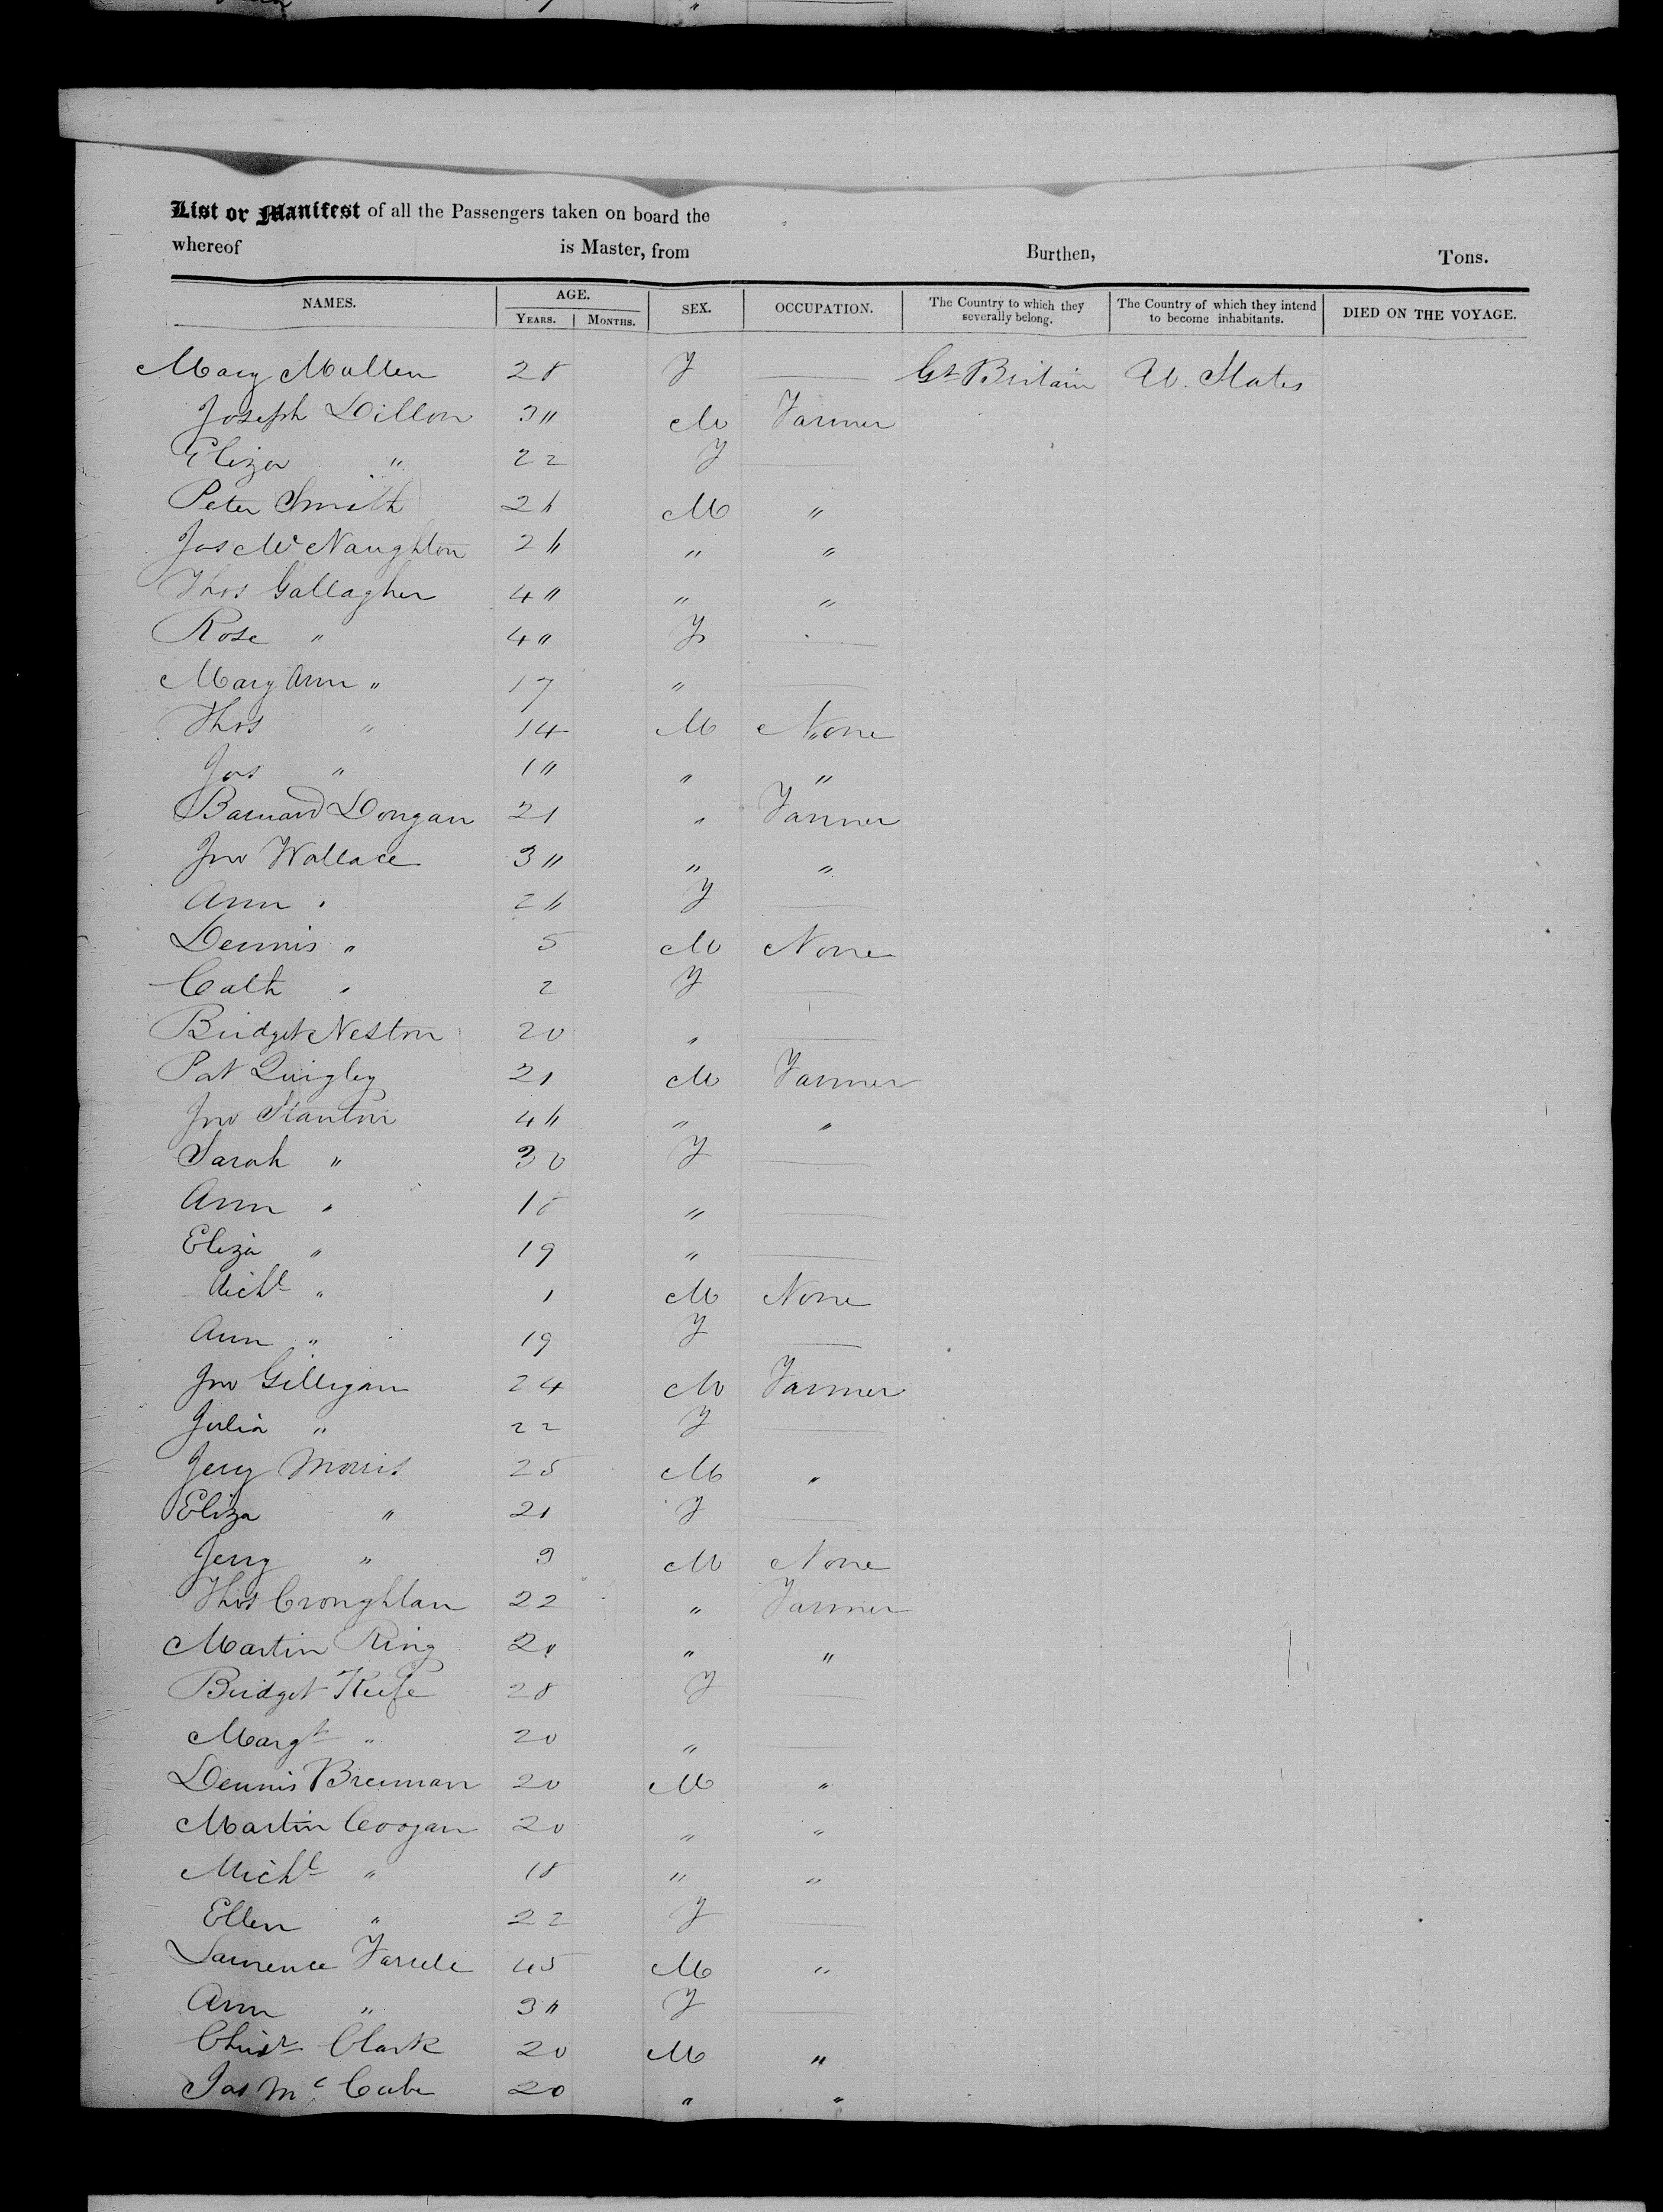 List or Manifest of all the Passengers taken on board the
whereof is Master, from Burthen, Tons.
NAMES. AGE. YEARS. MONTHS. SEX. OCCUPATION. The Country to which they severally belong. The Country of which they intend to become inhabitants. DIED ON THE VOYAGE.
Mary Mullen 28 F — Gt Britain U. States
Joseph Dillon 3" M Farmer
Eliza " 22 F —
Peter Smith 26 M "
Jas McNaughton 26 " "
Thos Gallagher 4" " "
Rose " 4" F —
Mary Ann " 17 " —
Thos " 14 M None
Jas " 1" " "
Barnard Dongan 21 " Farmer
Jno Wallace 3" " "
Ann " 26 F —
Dennis " 5 M None
Cath " 2 F —
Bridget Neston 20 " —
Pat Quigley 21 M Farmer
Jno Stanton 46 " "
Sarah " 30 F —
Ann " 18 " —
Eliza " 19 " —
Michl " 1 M None
Ann " 19 F —
Jno Gilligan 24 M Farmer
Julia " 22 F —
Jerry Morris 25 M "
Eliza " 21 F —
Jerry " 3 M None
Thos Croughlan 22 " Farmer
Martin Ring " "
Bridget Keefe 28 F —
Margt " 20 " —
Dennis Brennan 20 M "
Martin Coogan 20 " "
Michl " 18 " "
Ellen " 22 F —
Lawrence 45 M "
Ann " 3" F —
Chisr Clark 20 M "
Jas McCabe 20 " "